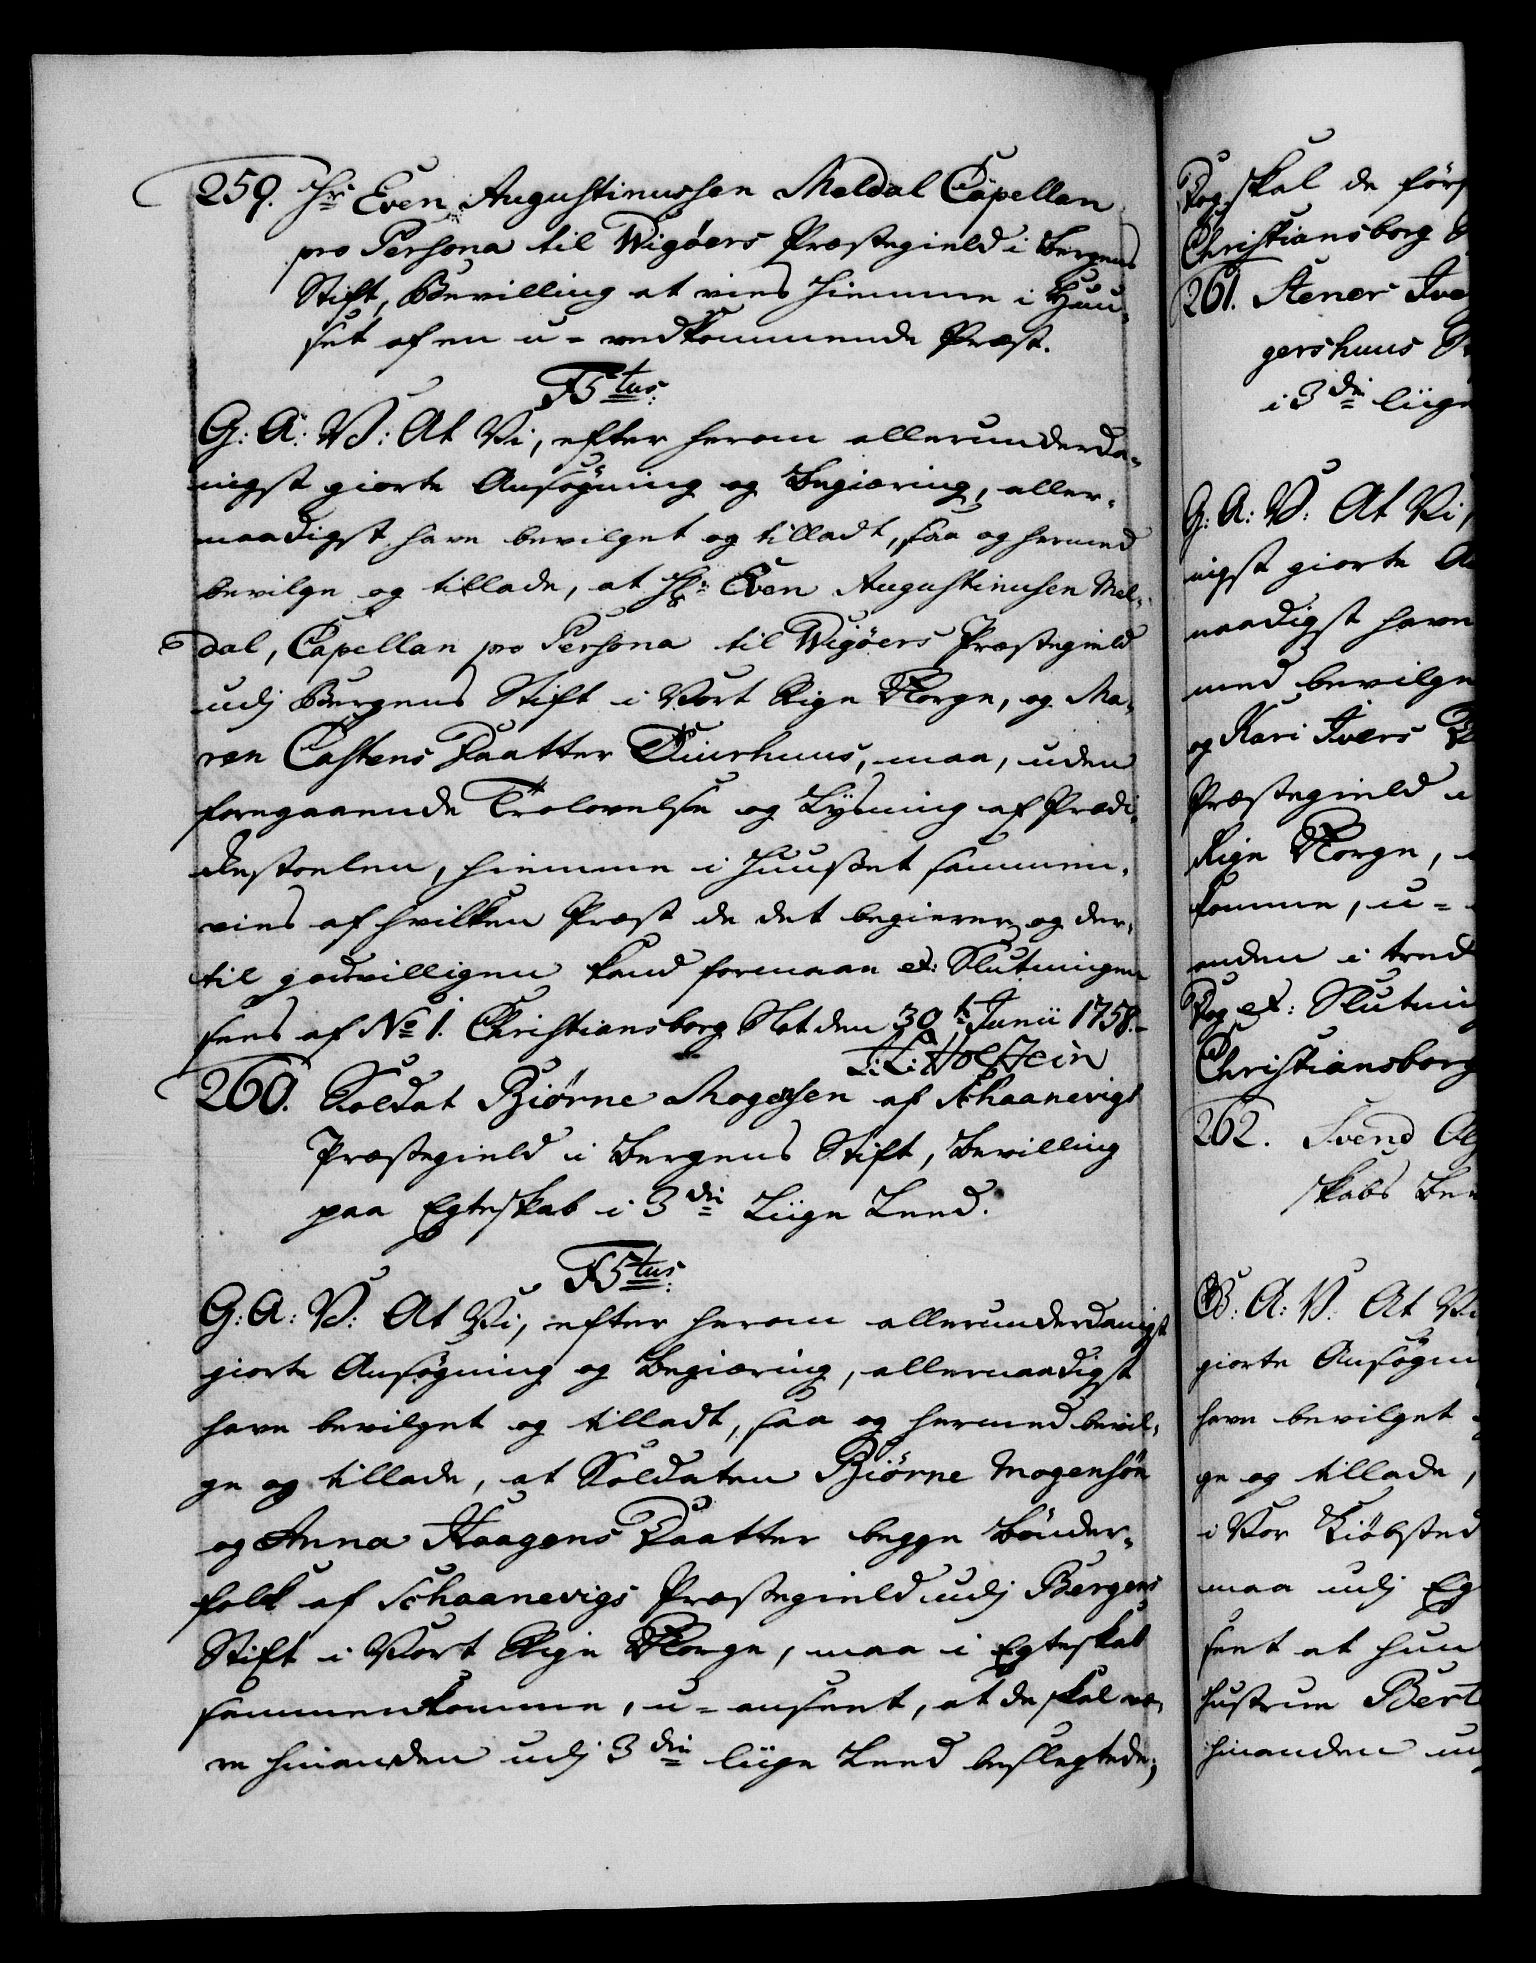 259. Hr Even Augustinussen Meldal Capellan
pro Persona til Wigøers Præstegield i Bergens
Stift, Bevilling at vies hiemme i Huu-
set af en u-vedkommende Præst.
Fr. tus:
G: A: V: At Vi, efter herom allerunderda-
nigst giorte Ansøgning og Begiæring, aller-
naadigst have bevilget og tilladt, saa og hermed
bevilge og tillade, at Hr. Even Augustinusen Mel-
dal, Capellan pro Persona til Wigøers Præstegield
udj Bergens Stift i Vort Rige Norge, og Ma-
ren Castens Daatter Tuurhuus, maa, uden
foregaaende Trolovelse og Lysning af Prædi-
kestoelen, hiemme i Huuset sammen-
vies af hvilken Præst de det begierer og der-
til godvilligen kand formaae etc: Slutningen
sees af No 1. Christiansborg Slot den 30te Junii 1758.
L: L: Holstein
260. Soldat Biørne Mogensen af Schaanevigs
Præstegield i Bergens Stift, Bevilling
paa Egteskab i 3die Liige Leed.
Fr. tus:
G: A: V: At Vi, efter herom allerunderdanigst
giorte Ansøgning og Begiæring, allernaadigst
have bevilget og tilladt, saa og hermed bevil-
ge og tillade, at Soldaten Biørne Mogensøn
og Anna Haagens Daatter begge Bønder-
folk af Schaanevigs Præstegield udj Bergens
Stift i Vort Rige Norge, maa i Egteskab
sammenkomme, u-anseet, at de skal væ-
re hinanden udj 3die liige Leed beslegtede,
Dog skal de førs
Christiansborg
261. Stener Ive
gershuus
i 3die liige
G: A: V: At Vi,
nigst giorte A
naadigst have
med bevilge
og Kari Ivers
Præstegield i
Rige Norge,
komme, u-
anden i tred
Dog etc: Slutnin
Christiansborg
262. Svend
skabs Be
G: A: V: At Vi
giorte Ansøgn
have bevilget
ge og tillade,
i Vor Kiøbsted
maa udj Eg
seet at hun
hustrue Bert
hinanden u